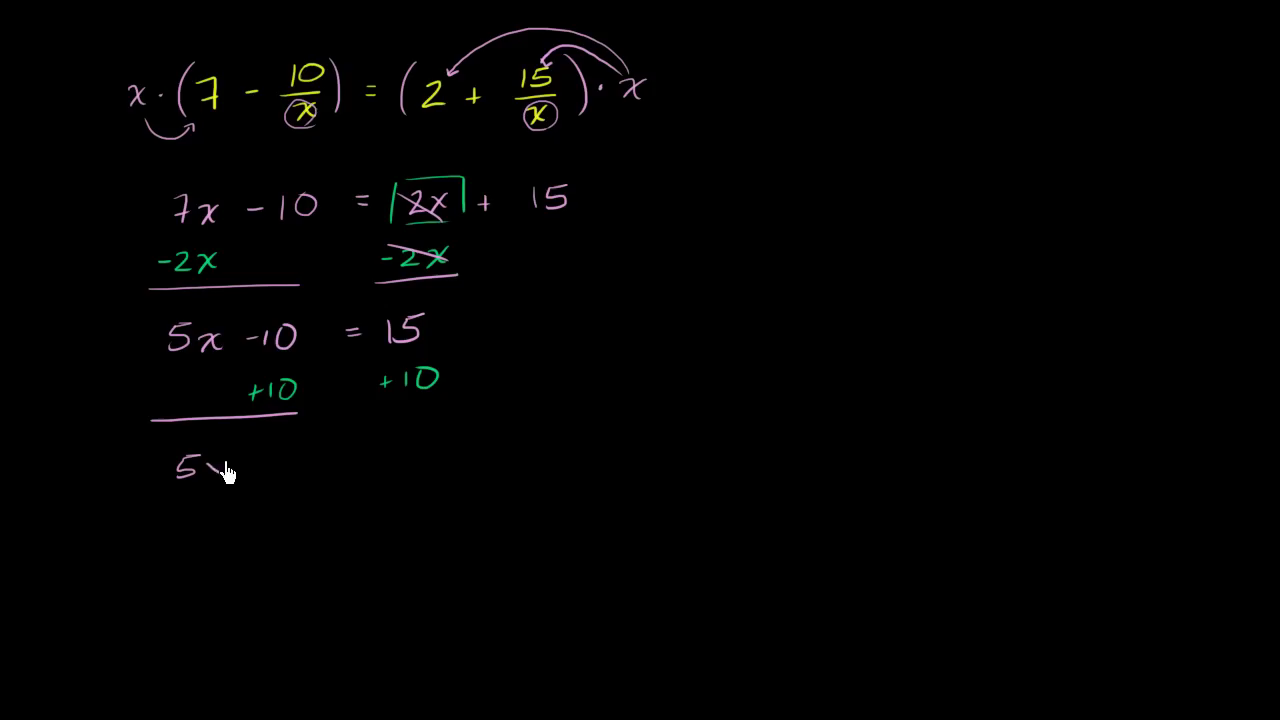 x · (7 - 10/x) = (2 + 15/x) · x
7x - 10 = 2x + 15
-2x -2x
5x -10 = 15
+10 +10
5x